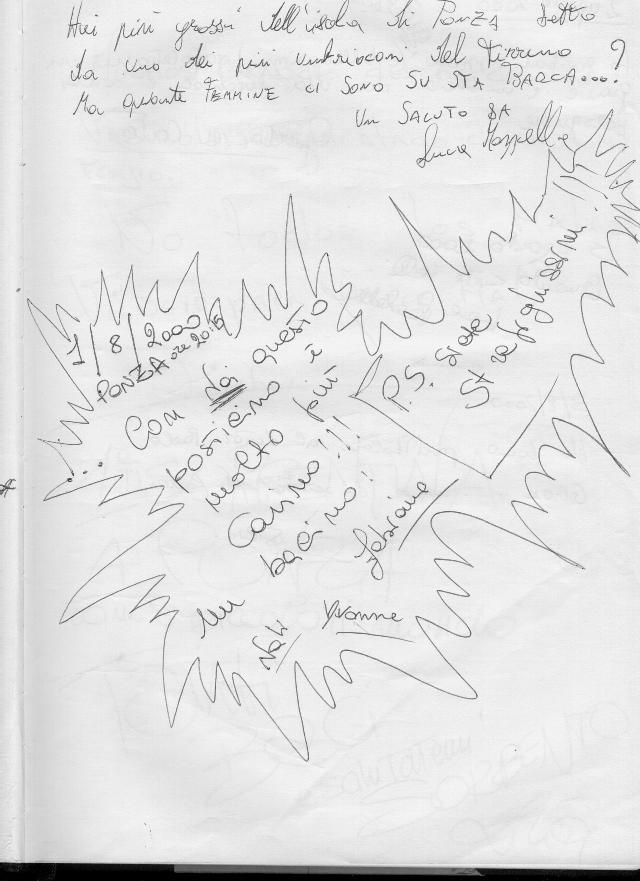 più grossi dell'isola di PONZA detto
da uno dei più ubriaconi del tirreno ?
Ma quante FEMMINE CI SONO SU STA BARCA....!
UN SALUTO DA
Luca
1/8/2000
PONZA ore 20:15
... Con questo
postiamo è
molto più
Carino!!!
Un bacino!
Fabiana
Yvonne
P.S. siete
strafighissimi!!